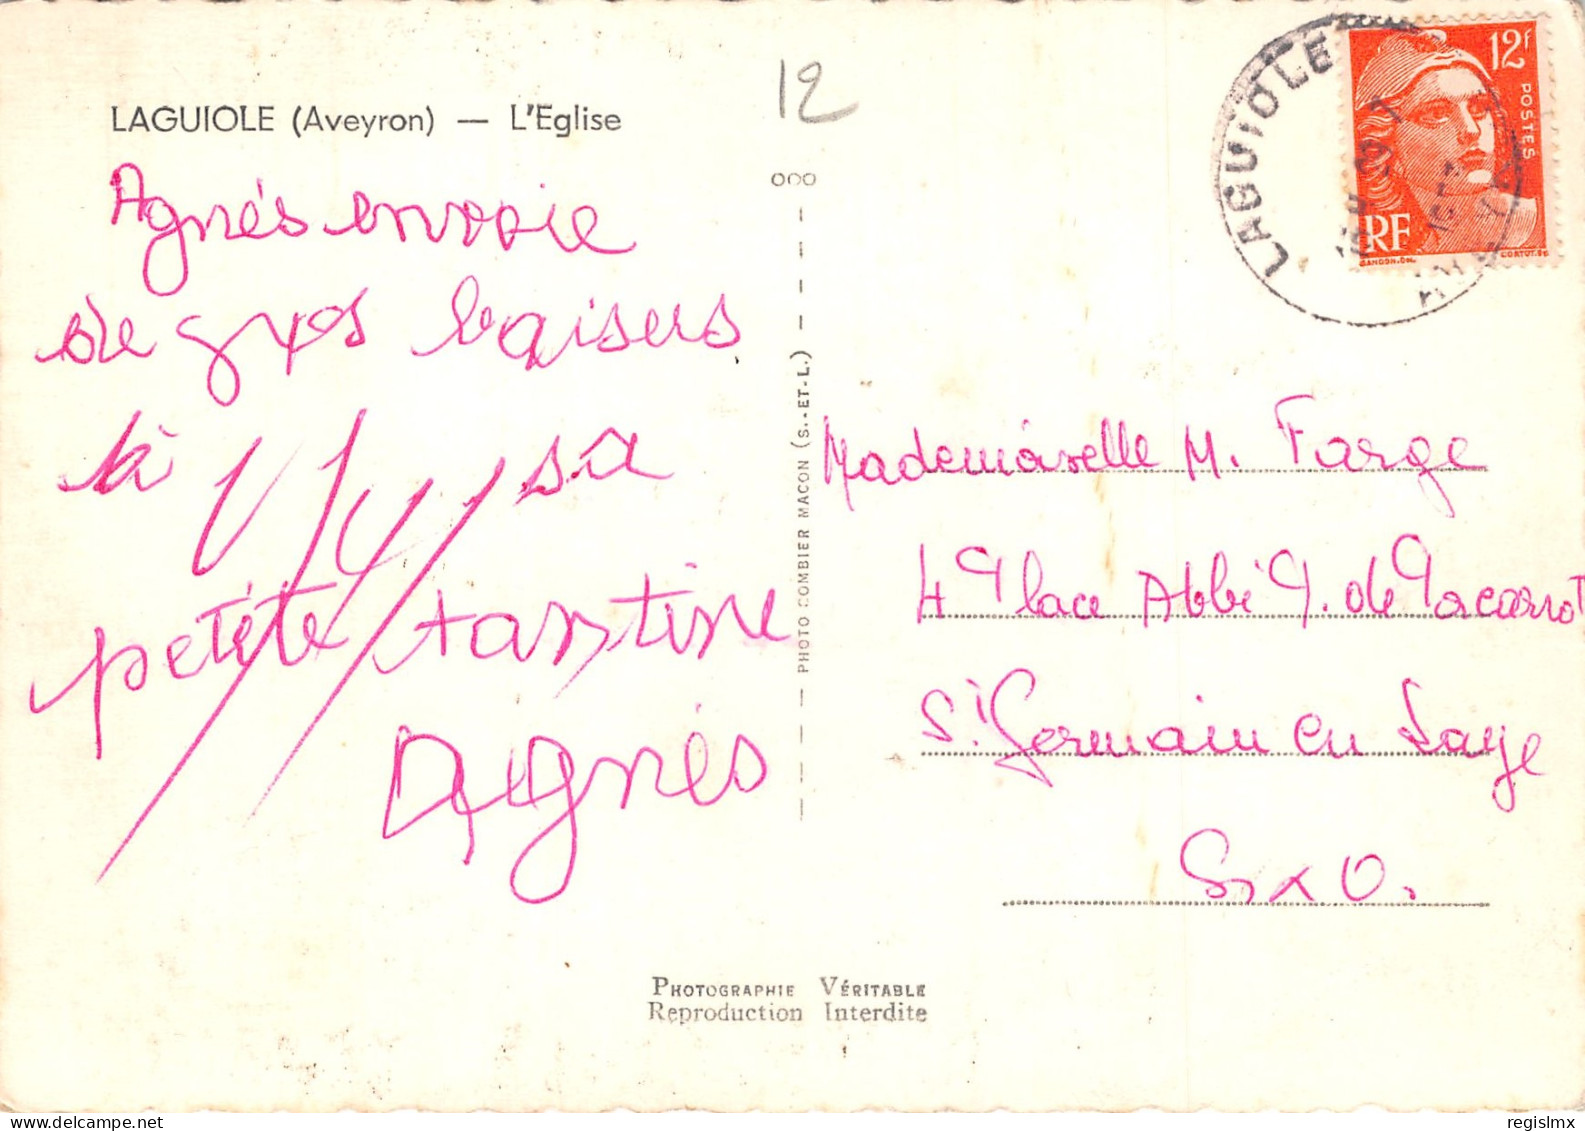 LAGUIOLE (Aveyron) — L'Eglise
12
Agnés envoie
de gros baisers
à sa
petite tantine
Agnés
000
PHOTO COMBIER MACON (S.-ET-L.)
LAGUIOLE
12f
POSTES
RF
GANDON.DEL.
CORTOT.SC
Mademoiselle M. Farge
4 Place Abbé P. de Porcarot
St Germain en Laye
S x O.
PHOTOGRAPHIE VÉRITABLE
Reproduction Interdite
delcampe.net
regislmx